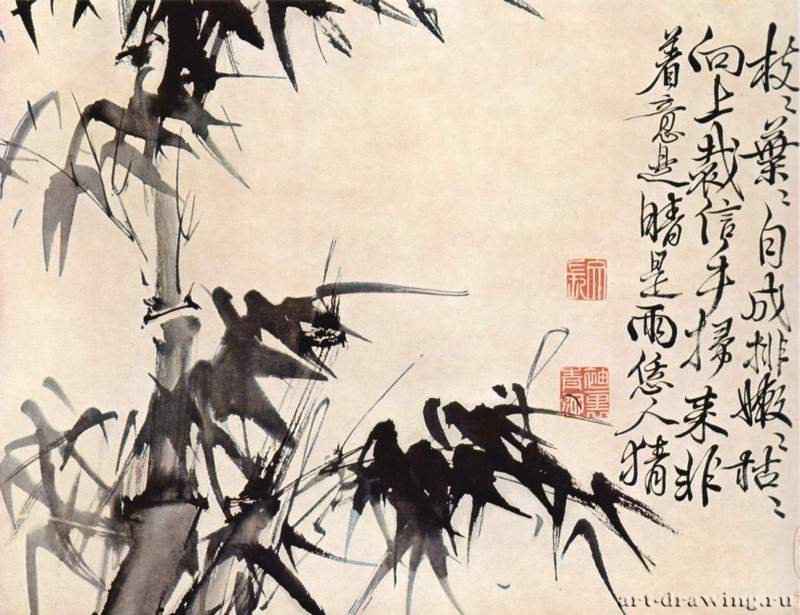 枝〻葉〻自成排嫩〻枯〻
向上裁信手掃来非
着意是晴是雨恁人猜
文長
art-drawing.ru